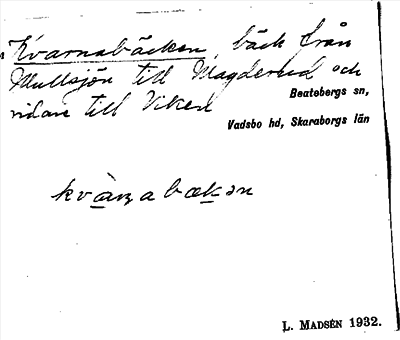 Kvarnabäcken, bäck från
Mullsjön till Magderud och
vidare till Viken
Beatebergs sn,
Vadsbo hd, Skaraborgs län
kvàṉabæḵən
L. MADSÉN 1932.